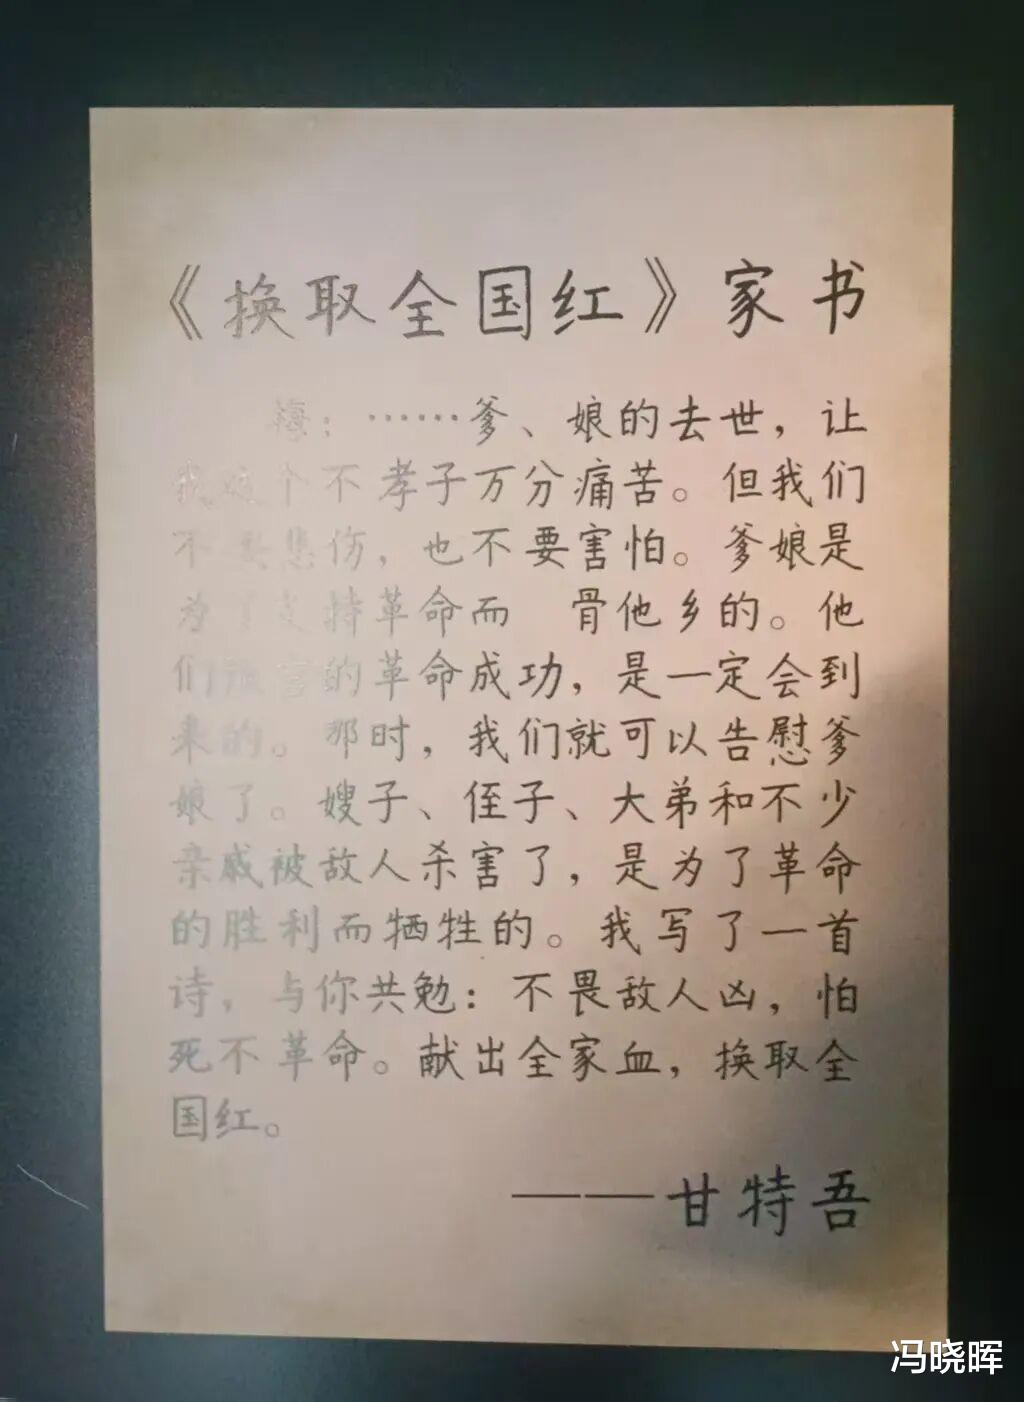 《换取全国红》家书
：……爹、娘的去世，让
我这个不孝子万分痛苦。但我们
不要悲伤，也不要害怕。爹娘是
为了支持革命而 骨他乡的。他
们预言的革命成功，是一定会到
来的。那时，我们就可以告慰爹
娘了。嫂子、侄子、大弟和不少
亲戚被敌人杀害了，是为了革命
的胜利而牺牲的。我写了一首
诗，与你共勉：不畏敌人凶，怕
死不革命。献出全家血，换取全
国红。
——甘特吾
冯晓晖